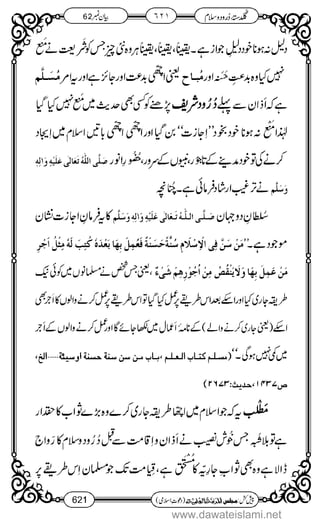 بیان نمبر 62 ۶۲۱ گلدستۂ درود و سلام
نہ ہونا خود دلیلِ جواز ہے۔ یقیناً، یقیناً، یقیناً ہر وہ نئی چیز جس کو شریعت نے مَنْع
نہیں کیا وہ بدعتِ حَسَنہ اور مُباح یعنی اچھی بدعت اور جائز ہے اور یہ امرِ مُسَلَّم
ہے کہ اَذان سے پہلے دُرُود شریف پڑھنے کو کسی بھی حدیث میں مَنْع نہیں کیا گیا
لہٰذا مَنْع نہ ہونا خود بخود ’’اِجازت‘‘ بن گیا اور اچھی اچھی باتیں اسلام میں ایجاد
کرنے کی تو خود مدینے کے تاجور، نبیوں کے سَرور، انور صَلَّی اللہُ تَعَالٰی عَلَیْہِ وَاٰلِہٖ
وَسَلَّم نے ترغیب ارشاد فرمائی ہے۔ چنانچہ
سُلطانِ دو جہان صَلَّی اللہُ تَعَالٰی عَلَیْہِ وَاٰلِہٖ وَسَلَّم کا یہ فرمانِ اِجازت نشان
موجود ہے۔ ’’مَنْ سَنَّ فِی الْاِسْلَامِ سُنَّۃً حَسَنَۃً فَعُمِلَ بِھَا بَعْدَہٗ کُتِبَ لَہٗ مِثْلُ اَجْرِ
مَنْ عَمِلَ بِھَا وَلَا یَنْقُصُ مِنْ اُجُوْرِھِمْ شَیْءٌ، یعنی جس شخص نے مسلمانوں میں کوئی نیک
طریقہ جاری کیا اور اسکے بعد اس طریقے پر عمل کیا گیا تو اس طریقے پر عمل کرنے والوں کا اَجر بھی
اسکے (یعنی جاری کرنے والے کے) نامۂ اَعمال میں لکھا جائے گا اور عمل کرنے والوں کے اَجر
میں کمی نہیں ہوگی۔‘‘ (مسلم کتاب العلم ،باب من سن سنة حسنة اوسیئة....الخ،
ص۱۴۳۷،حدیث:۲۶۷۳)
مَطْلَب یہ کہ جو اسلام میں اچھا طریقہ جاری کرے وہ بڑے ثواب کا حقدار
ہے تو بلا شبہ جس خوش نصیب نے اَذان و اِقامت سے قبل دُرُود و سلام کا رواج
ڈالا ہے وہ بھی ثوابِ جاریّہ کا مُستحق ہے، قیامت تک جو مسلمان اس طریقے پر
621 پیش کش: مجلس المدینۃ العلمیۃ (دعوتِ اسلامی)
www.dawateislami.net